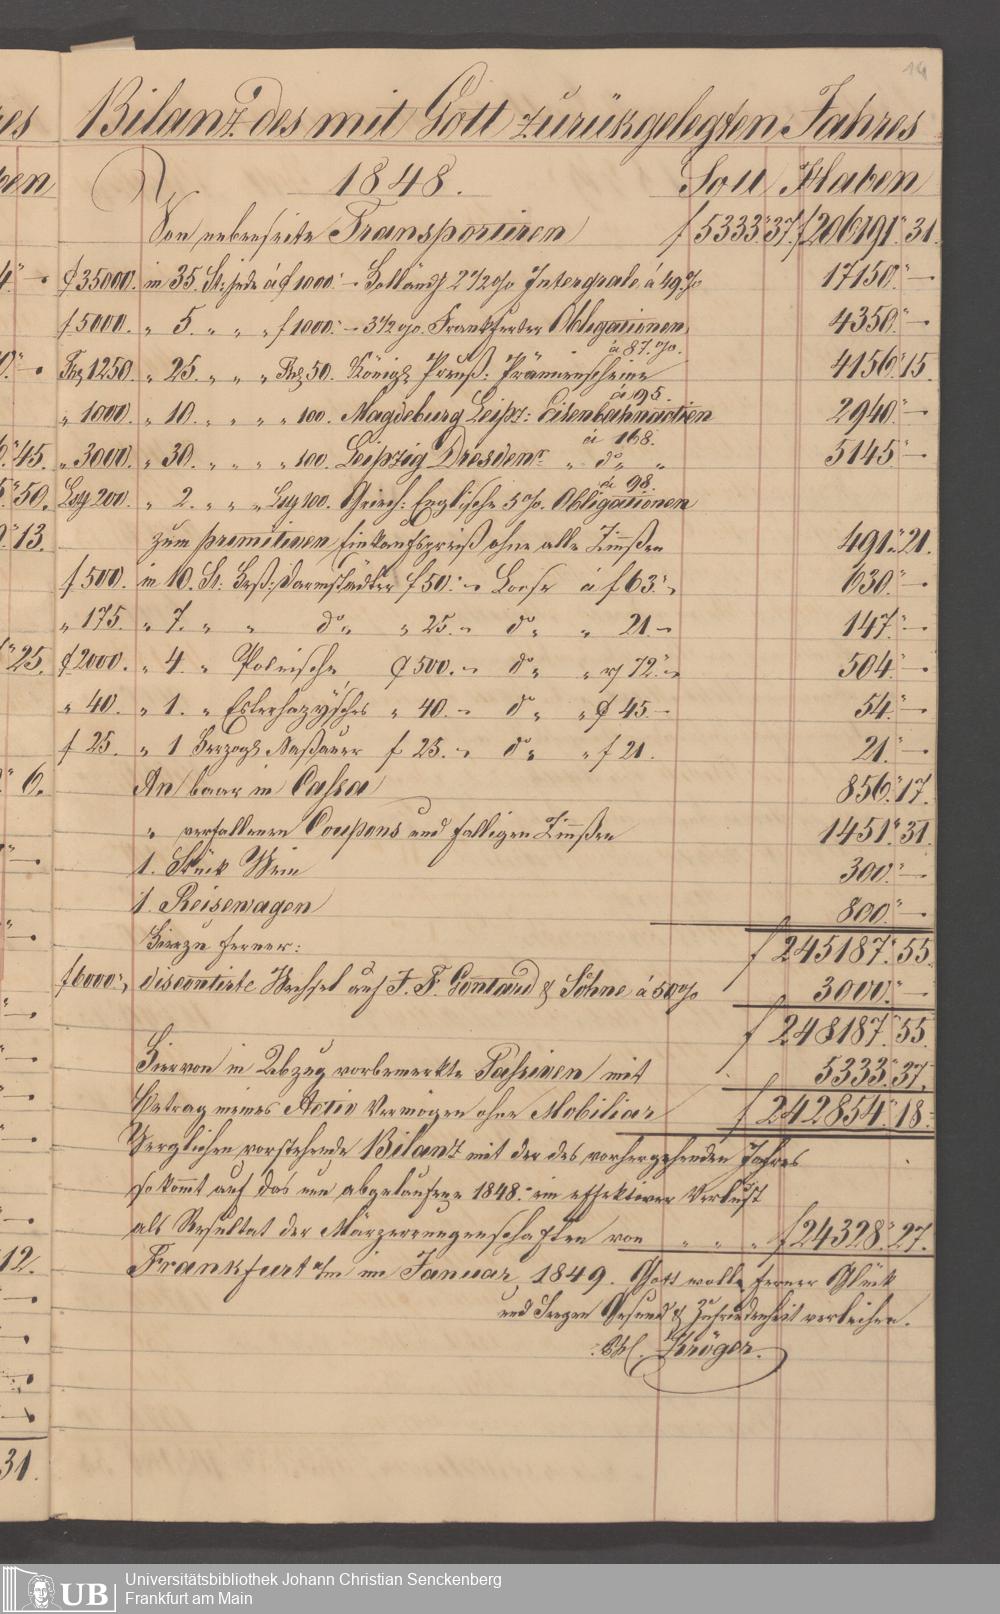 14
Bilanz des mit Gott zurükgelegten Jahres
1848. Soll Haben
Von nebenseite Transportiren f 5333."37. f 206191."31.
₵ 35000. in 35. St: jede á ₵ 1000:- Holländ 2 1/2 % Intergrale á 49 % 17150."-
f. 5000. " 5. " " " f 1000:- 3 1/2 %. Frankfurter Obligationen á 87. %. 4350."-
Thl. 1250. " 25. " " " Thl. 50. Königl. Preuß: Prämienscheine á 95. 4156."15.
" 1000. " 10. " " " " 100. Magdeburg Leipz: Eisenbahnactien á 168. 2940."-
" 3000. " 30. " " " " 100. Leipzig Dresdenr " do " " á 98. 5145."-
Lsg 200. " 2. " " " Lsg 100. Griech: Englische 5 %. Obligationen
zum primitiven Einkaufspreiß ohne alle Zinßen 491."21.
f. 500. in 10. St. Heß: Darmstädter f 50:- Loose á f 63:- 630."-
" 175. " 7. " " do " " 25.- do " " 21- 147."-
₵ 2000. " 4. " Polnische ₵ 500.- do " " 72:- 504."-
" 40. " 1. " Esterhazysches " 40.- do " " ₵ 45.- 54."-
f 25. " 1 Herzogl. Naßauer f 25.- do " " f 21. 21."-
An baar in Cassa 856."17.
" verfallenen Coupons und fälligen Zinnßen 1451."31.
1. Stück Wein 300."-
1. Reisewagen 800."-
Hierzu ferner: f 245187."55.
f 6000:- discontirte Wechsel auf J. F. Gontard & Söhne á 50 % 3000."-
f 248187."55.
Hiervon in Abzug vorbemerkte Passiven mit 5333."37.
Betrag meines Activ Vermögen ohne Mobiliar f 242854."18.
Verglichen vorstehende Bilanz mit der des vorhergehenden Jahres
so kommt auf das nun abgelaufene 1848: ein effektiver Verlust
als Resultat der Märzerrungenschaften von " " " f 24328."27.
Frankfurt a/m im Januar 1849. Gott wolle ferner Glück
und Seegen Gesund & Zufriedenheit verleihen.
Kröger.
UB Universitätsbibliothek Johann Christian Senckenberg
Frankfurt am Main